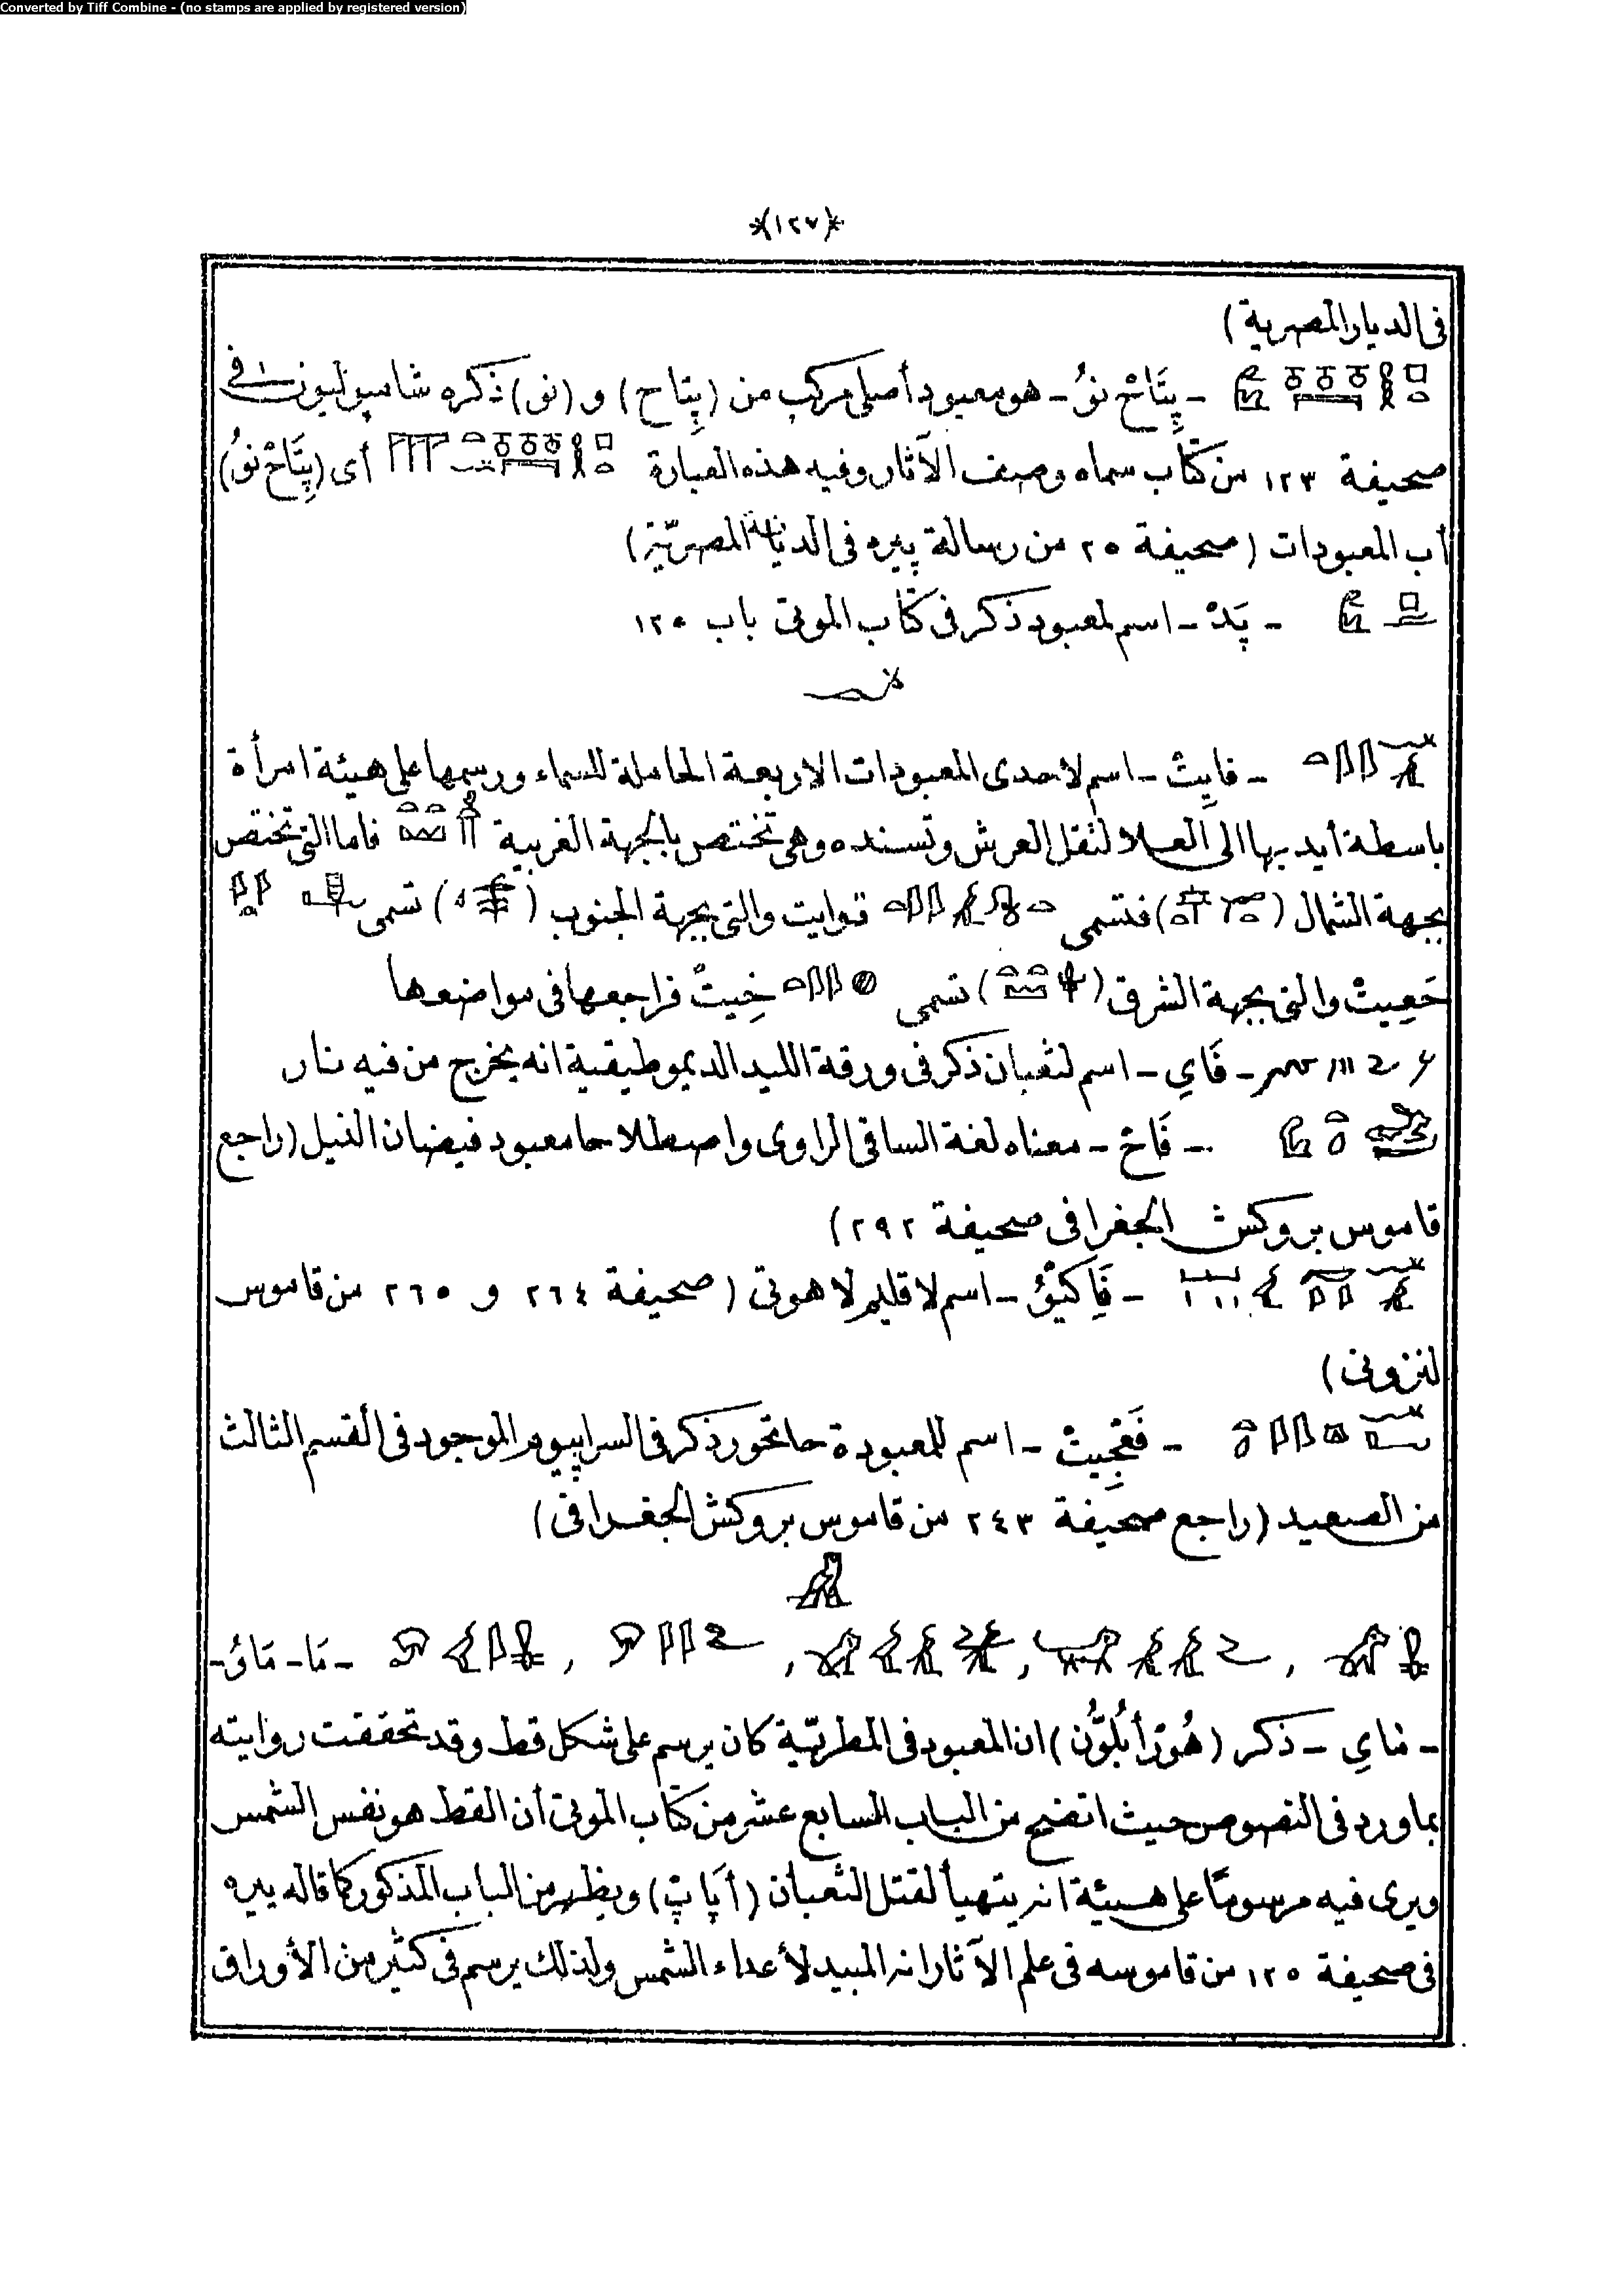 Converted by Tiff Combine - (no stamps are applied by registered version)
*(١٢٧)*
فى الديار المصرية)
- پِتَاحْ نوُ - هو معبود أصلى مركب من (پِتاح) و (نو) ذكره شامپوليون ١ فى
صحيفة ١٢٣ من كتاب سماه وصف الآثار وفيه هذه العبارة أى (پِتَاحْ نوُ)
أب المعبودات (صحيفة ٢٥ من رسالة پيره فى الديانة المصريّة)
- پَدْ - اسم لمعبود ذكر فى كتاب الموتى باب ١٢٥
- فايِتْ - اسم لاحدى المعبودات الاربعة الحاملة للسماء ورسمها على هيئة امرأة
باسطة أيديها الى العلا لثقل العرش وتسنده وهى تختص بالجهة الغربية فاما التى تختص
بجهة الشمال ( ) فتسمى توايت والتى بجهة الجنوب ( ) تسمى
حَعِيتْ والتى بجهة الشرق ( ) تسمى خِيتْ فراجعها فى مواضعها
- فَاىِ - اسم لثعبان ذكر فى ورقة الليد الديموطيقية انه يخرج من فيه نار
- فَاخْ - معناه لغة الساقى الراوى واصطلاحا معبود فيضان النيل (راجع
قاموس بروكش الجغرافى صحيفة ٢٩٢)
- فَاكيْوُ - اسم لاقليم لاهوتى (صحيفة ٢٦٤ و ٢٦٥ من قاموس
لنزونى)
- فَعْجِيتْ - اسم للمعبودة حاتحور ذكر فى السراپيوم الموجود فى القسم الثالث
من الصعيد (راجع صحيفة ٢٤٣ من قاموس بروكش الجغرافى)
- مَا - مَائُ -
- مَاىِ - ذكر (هُورْأَبُلوُّن) ان المعبود فى المطريّة كان يرسم على شكل قط وقد تحققت روايته
بماورد فى النصوص حيث اتضح من الباب السابع عشر من كتاب الموتى أن القط هو نفس الشمس
ويرى فيه مرسومًا على هيئة انه يتهيأ لقتل الثعبان (أَپاپْ) ويظهر من الباب المذكور كما قاله پيره
فى صحيفة ١٢٥ من قاموسه فى علم الآثار انه المبيد لأعداء الشمس ولذلك يرسم فى كثير من الأوراق